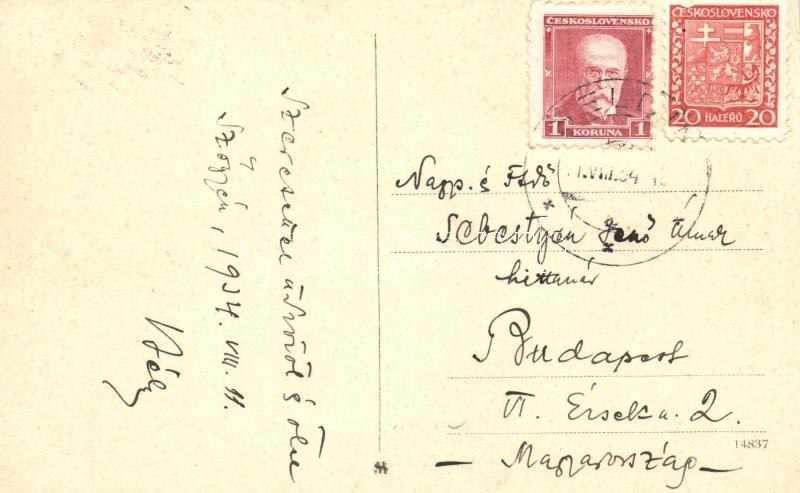 ČESKOSLOVENSKO
1 1
KORUNA
ČESKOSLOVENSKO
20 20
HALÉŘŮ
Szeretettel üdvözöl és ölel
Szőgyén, 1934. VIII. 11.
Béla
Nagys. és Ftdő
Sebestyén Jenő Úrnak
hittanár
Budapest
VI. Érsek u. 2.
- Magyarország -
14837